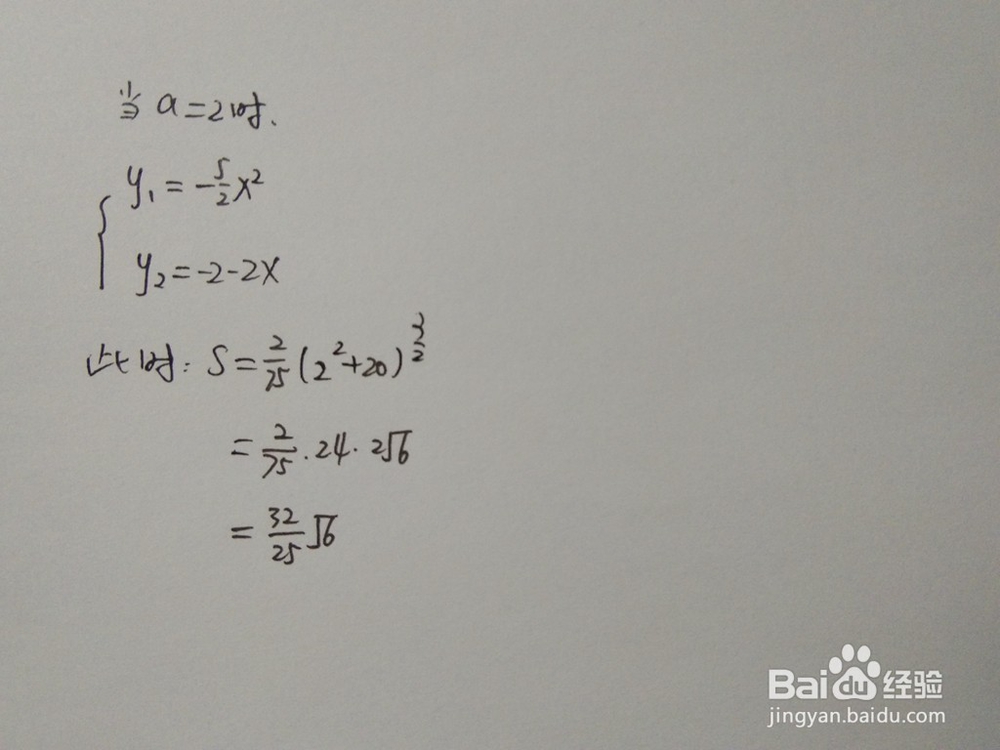 当 a=2时.
y₁=-5/2x²
y₂=-2-2x
此时: S=2/75(2²+20)^(3/2)
=2/75·24·2√6
=32/25√6
Baidu经验
jingyan.baidu.com